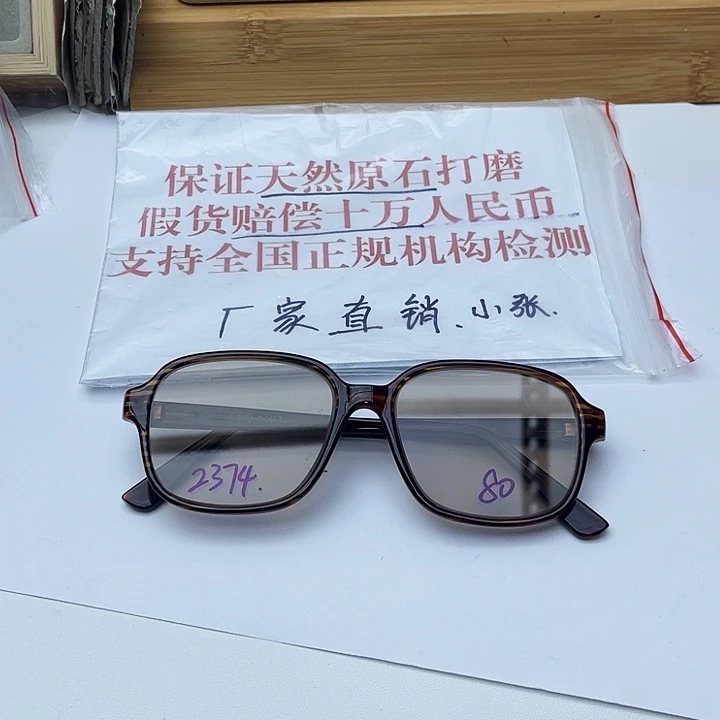 保证天然原石打磨
假货赔偿十万人民币
支持全国正规机构检测
厂家直销.小张.
2374.
80